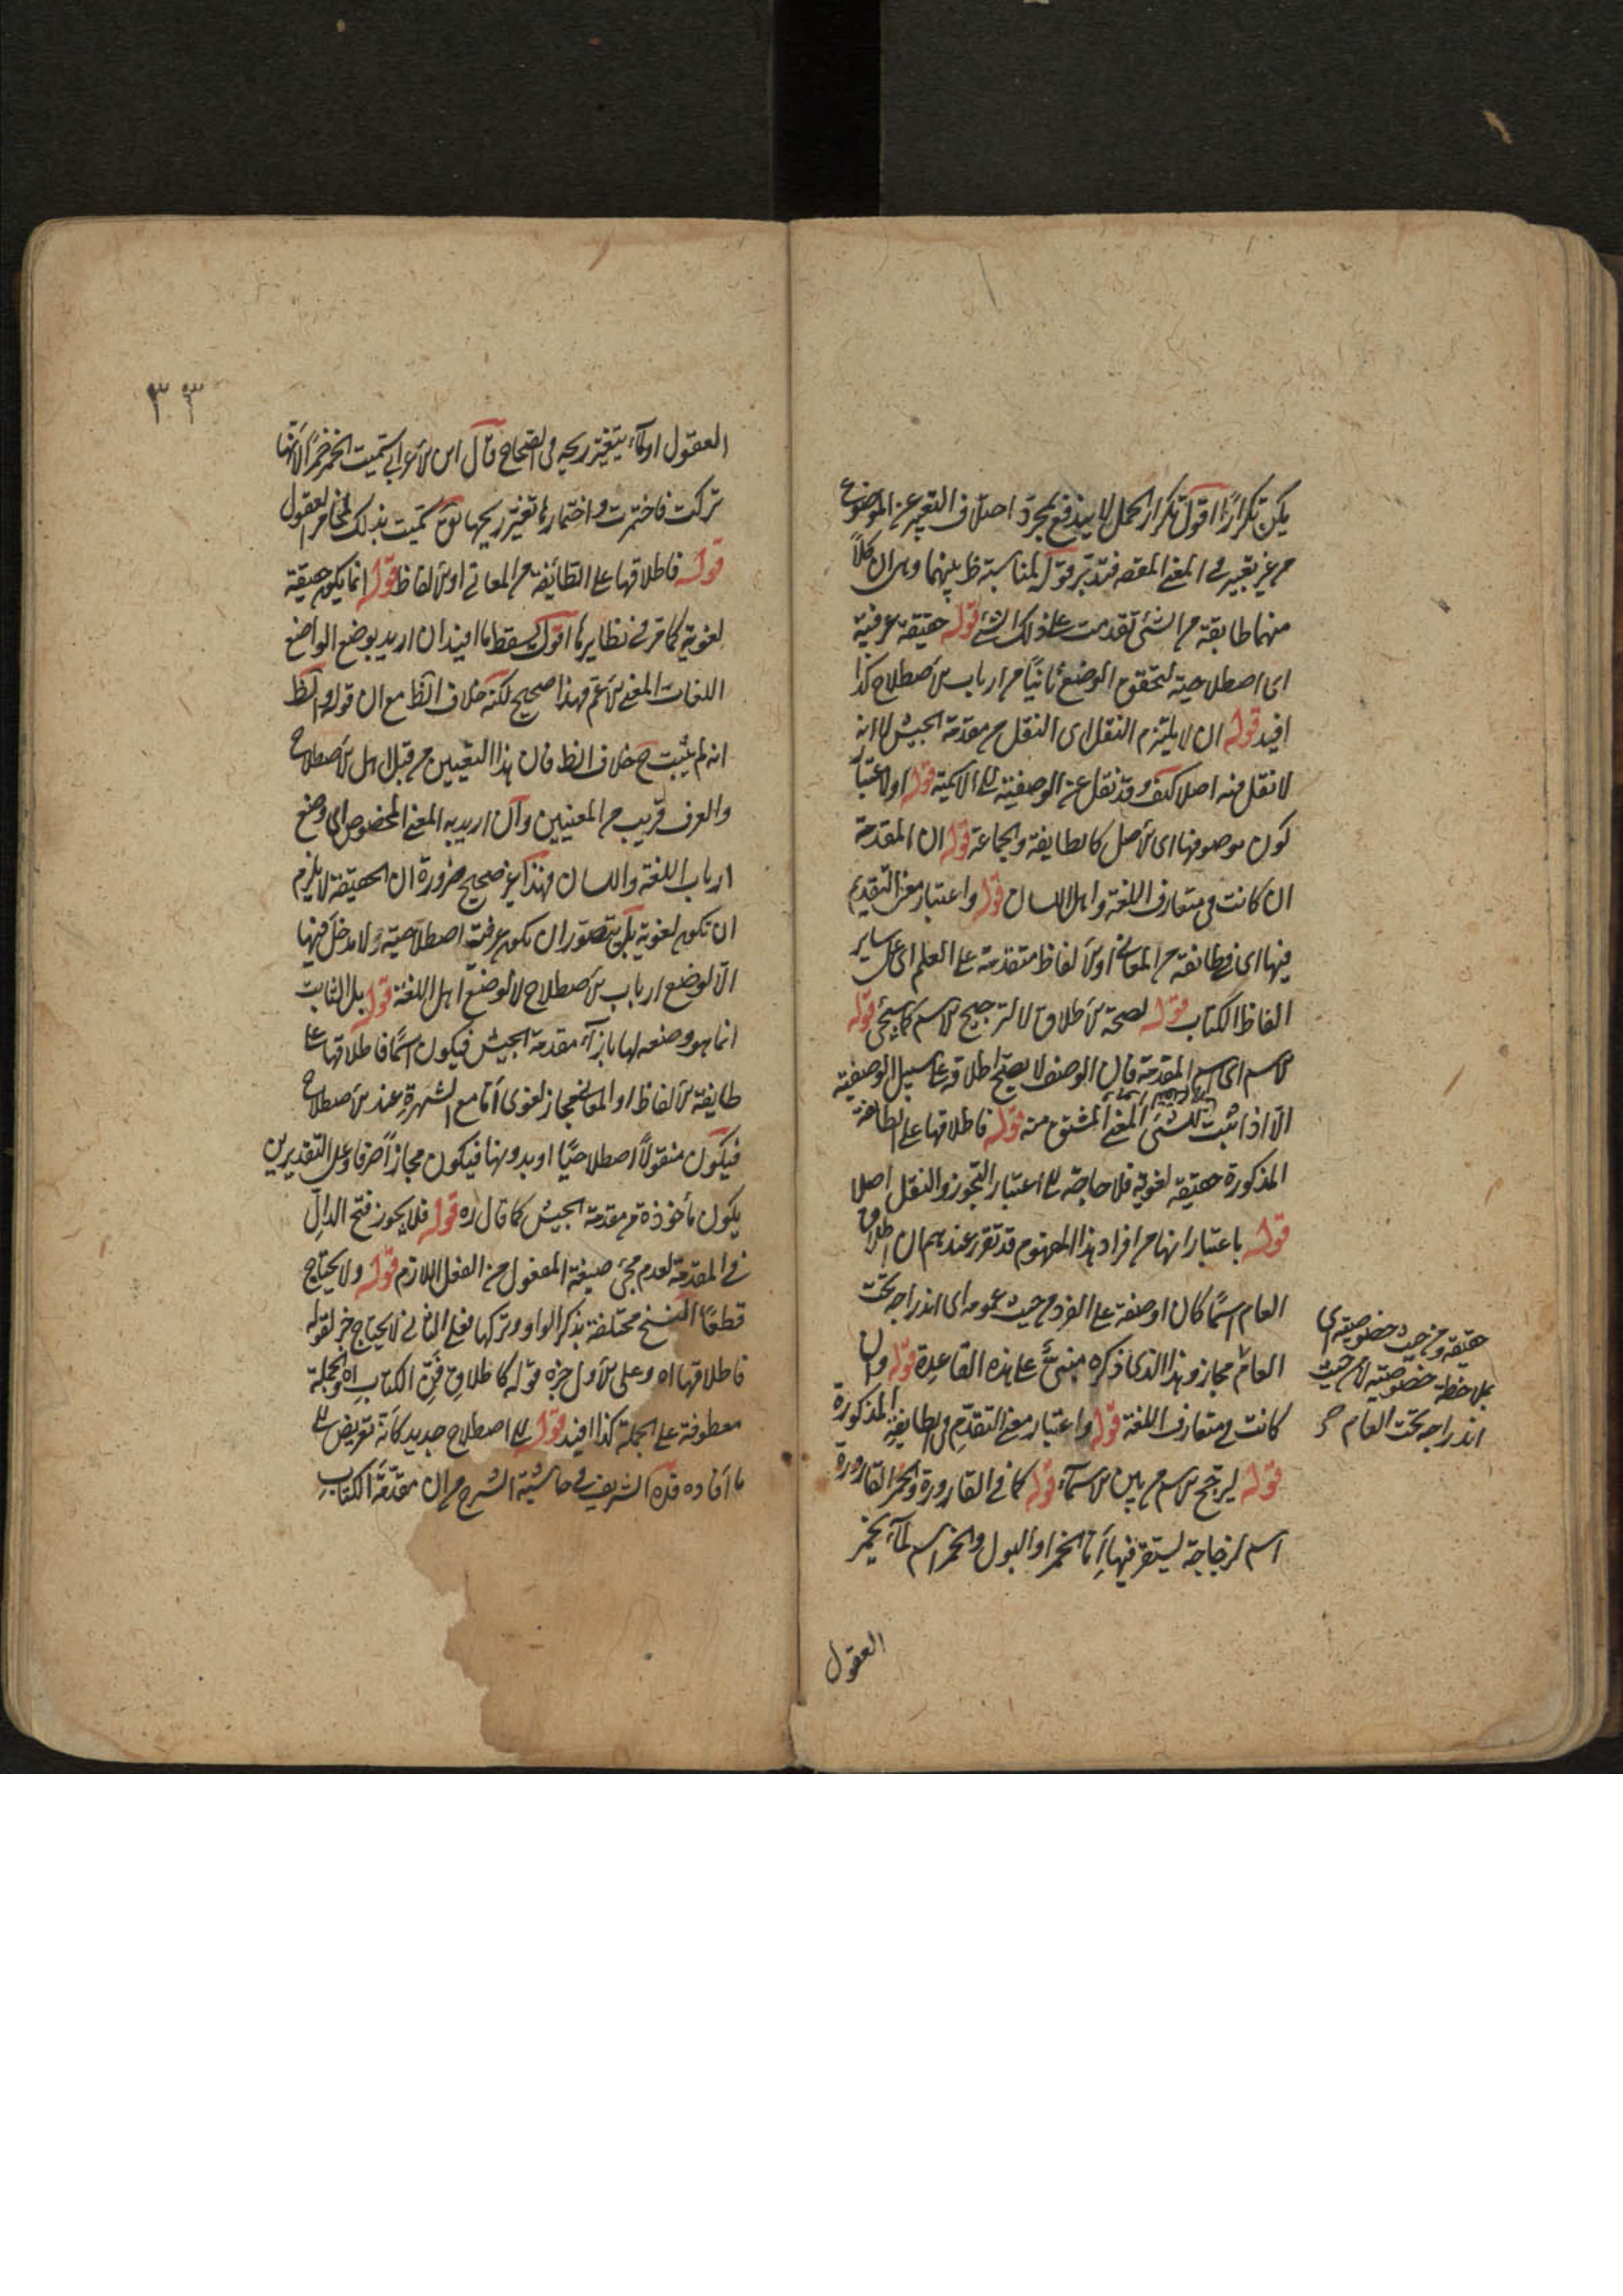 يكن تكرارًا اقول تكرار الحمل لا يندفع بمجرد اختلاف التعبير عن الموضوع
من غير تغيير في المعنى المقصود فتدبر قوله لمناسبة ظ بينهما وهى ان كلاً
منهما طايفة من الشئ تقدمت على ذلك الشئ قوله حقيقة عرفية
اى اصطلاحية لتحقق الوضع ثانيًا من ارباب الاصطلاح كذا
افيد قوله ان لا يلتزم النقل اى النقل من مقدمة الجيش لا انه
لا نقل فيه اصلا كيف وقد نقل عن الوصفية الى الاسمية قوله او لاعتبار
كون موصوفها اى الاصل كالطايفة والجماعة قوله ان المقدمة
ان كانت في متعارف اللغة واهل اللسان قوله واعتبار معنى التقديم
فيها اى في طائفة من المعانى او الالفاظ متقدمة على العلم اى على ساير
الفاظ الكتاب قوله لصحة الاطلاق لا لترجيح الاسم كما سيجئ قوله
الاسم اى اسم المقدمة فان الوصف لا يصح اطلاقه على سبيل الوصفية
الا اذا ثبت للشئ المعنى المشتق منه قوله فاطلاقها على الطائفة
المذكورة حقيقة لغوية فلا حاجة الى اعتبار التجوز والنقل اصلا
قوله باعتبار انها من افراد هذا المفهوم قد تقرر عندهم ان اطلاق
العام اسمًا كان او صفة على الفرد من حيث عمومه اى اندراجه تحت
العام مجاز وهذا الذى ذكره مبنىٌّ على هذه القاعدة قوله وان
كانت في متعارف اللغة قوله واعتبار معنى التقدم في الطايفة المذكورة
قوله ليرجح الاسم من بين الاسماء قوله كما في القارورة والخمر القارورة
اسم لزجاجة يستقر فيها اما الخمر او البول والخمر اسم لماء يخمر
العقول
حقيقة من حيث خصوصيته اى
بملاحظة خصوصيته لا من حيث
اندراجه تحت العام
٣٣
العقول او ماء يتغير ريحه في الصحاح قال ابن الاعرابي سميت الخمر خمرًا لانها
تركت فاختمرت واختمارها تغير ريحها سميت بذلك لمخامر العقول
قوله فاطلاقها على الطائفة من المعاني او الالفاظ قوله انما يكون حقيقة
لغوية كما مر في نظايرها اقول يسقط ما افيد ان اريد بوضع الواضع
اللغات المعنى الاعم فهذا صحيح لكنه خلاف الظ مع ان قوله والظ
انه لم يثبت ح خلاف الظ فان هذا التعيين من قبل اهل الاصطلاح
والعرف قريب من المعنيين وان اريد به المعنى المخصوص اى وضع
ارباب اللغة واللسان فهذا غير صحيح ضرورة ان الحقيقة لا يلزم
ان تكون لغوية بل يتصور ان تكون عرفية اصطلاحية ولا مدخل فيها
الا لوضع ارباب الاصطلاح لا لوضع اهل اللغة قوله بل الثابت
انما هو وضعه لها بازاء مقدمة الجيش فيكون اسمًا فاطلاقها على
طايفة الالفاظ او المعانى مجاز لغوى اما مع الشهرة عند الاصطلاح
فيكون منقولاً اصطلاحيًا او بدونها فيكون مجازًا صرفا وعلى التقديرين
يكون مأخوذة من مقدمة الجيش كما قال ره قوله فلا يجوز فتح الدال
في المقدمة لعدم مجئ صيغة المفعول من الفعل اللازم قوله ولا يحتاج
قطعًا النسخ مختلفة بذكر الواو وتركها فعلى الثانى لا يحتاج خبر لقوله
فاطلاقها اه وعلى الاول خبره قوله كاطلاق فن الكتاب اه والجملة
معطوفة على الجملة كذا افيد قوله الى اصطلاح جديد كأنه تعريض الى
ما افاده قده الشريف في حاشية الشرح من ان مقدمة الكتاب